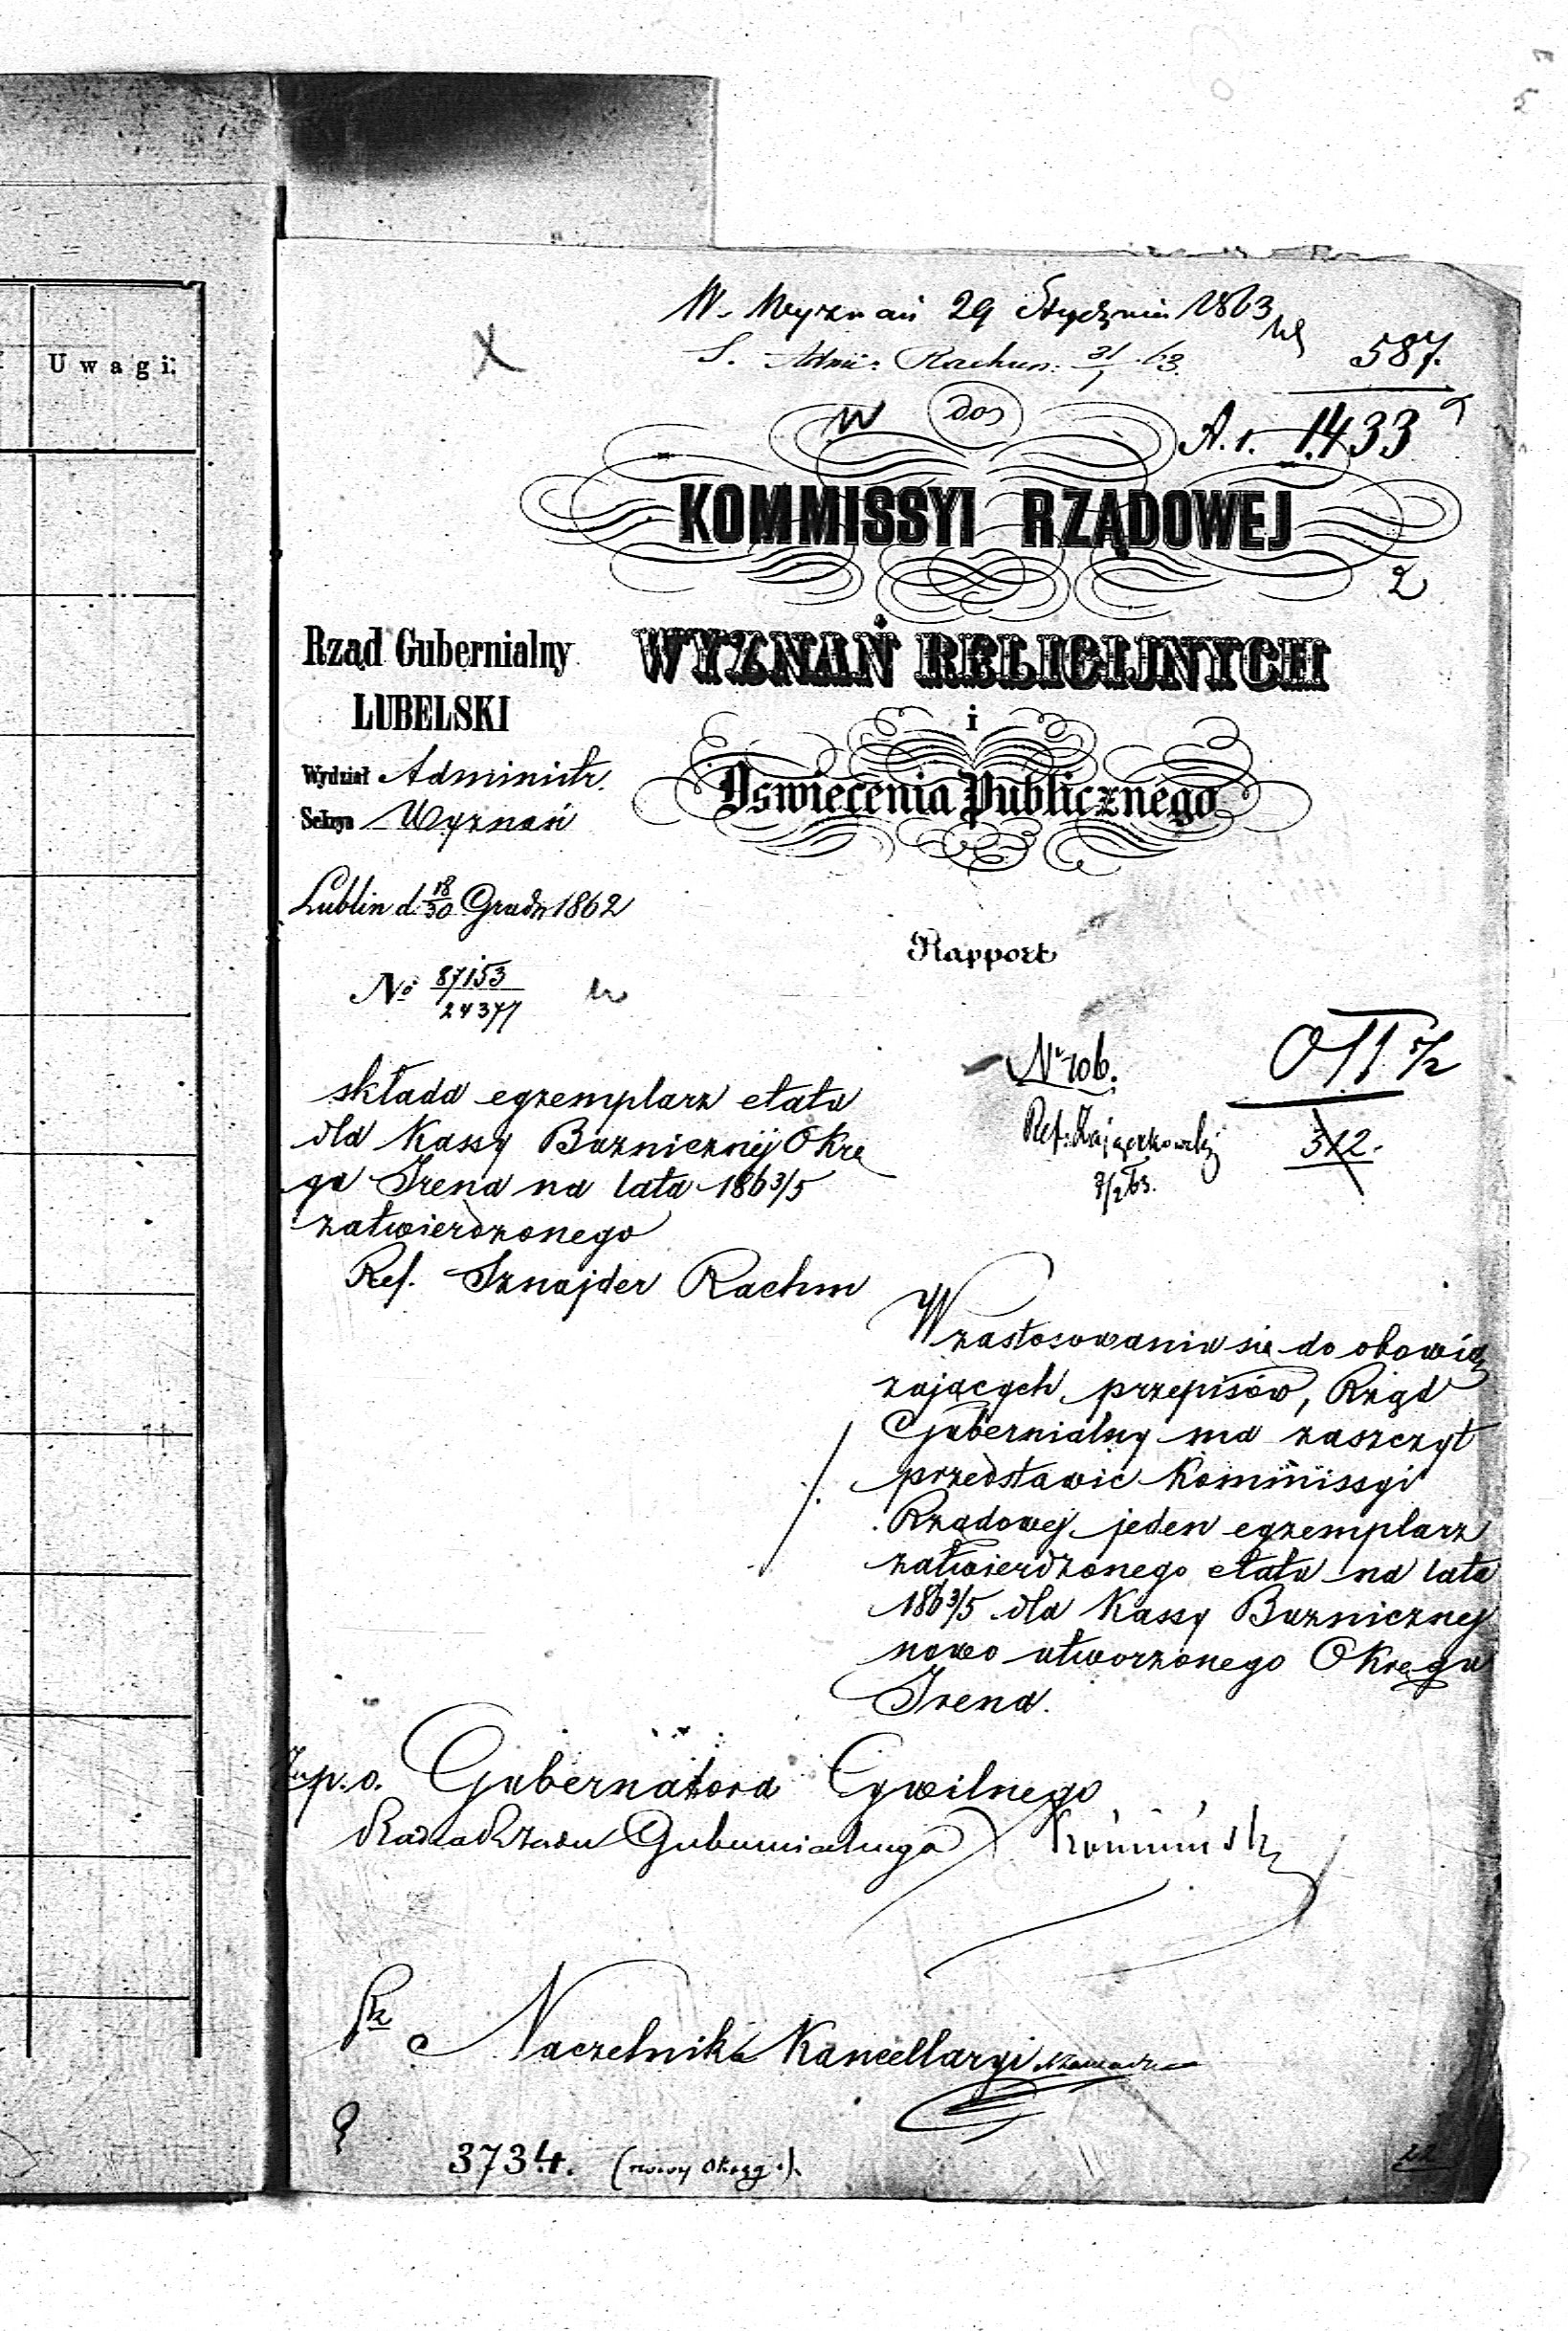 Uwagi.
W. Wyznań 29 Stycznia 1863
S. Adm: Rachun: 31/1 63.
587.
W
dos
A. 1. 1433
KOMMISSYI RZĄDOWEJ
2
WYZNAŃ RELIGIJNYCH
i
Oświecenia Publicznego
Rząd Gubernialny
LUBELSKI
Wydział Administr.
Sekcya Wyznań
Lublin d. 18/30 Grudn 1862
Rapport
No 87153/24377
składa egzemplarz etatu
dla Kassy Bużnicznéj Okrę
gu Irena na lata 1863/5
zatwierdzonego
Ref. Sznajder Rachm
No 106.
Ref:
7/2 63.
312.
W zastosowaniu się do obowią
zujących przepisów, Rząd
Gubernialny ma zaszczyt
przedstawić Kommissyi
Rządowej jeden egzemplarz
zatwierdzonego etatu na lata
1863/5 dla Kassy Bużnicznej
nowo utworzonego Okręgu
Irena.
p.o. Gubernatora Cywilnego
Radca Rządu Gubernialnego
Naczelnik Kancellaryi
3734. (nowy okręg).
22